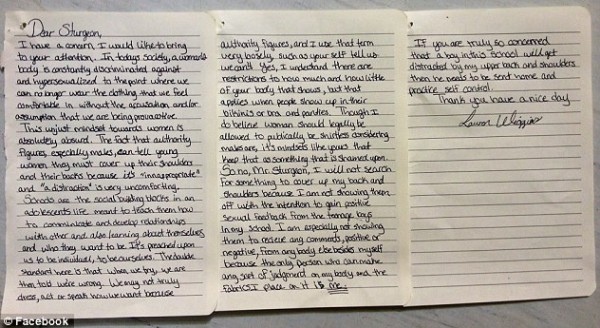 Dear Sturgeon,
I have a concern, I would like to bring
to your attention. In todays society, a woman's
body is constantly discriminated against
and hypersexualized to the point where we
can no longer wear the clothing that we feel
comfortable in without the accusation and/or
assumption that we are being provocative.
This unjust mindset towards women is
absolutely absurd. The fact that authority
figures, especially males, can tell young
women they must cover up their shoulders
and their backs because it's "innapropriate"
and "a distraction" is very uncomforting.
Schools are the social building blocks in an
adolescents life meant to teach them how
to communicate and develop relationships
with other and also learning about themselves
and who they want to be. It's preached upon
us to be individual, to be ourselves. The double
standard here is that when we try, we are
then told we're wrong. We may not truly
dress, act or speak how we want because
authority figures, and I use that term
very loosely, such as yourself tell us
we can't. Yes, I understand there are
restrictions to how much and how little
of your body that shows, but that
applies when people show up in their
bikini's or bra and panties. Though I
do believe woman should legally be
allowed to publically be shirtless considering
males are, it's mindsets like yours that
keep that as something that is shamed upon.
So no, Mr. Sturgeon, I will not search
for something to cover up my back and
shoulders because I am not showing them
off with the intention to gain positive
sexual feedback from the teenage boys
in my school. I am especially not showing
them to recieve any comments, positive or
negative, from any body else besides myself
because the only person who can make
any sort of judgment on my body and the
fabrics I place on it is me.
If you are truly so concerned
that a boy in this school will get
distracted by my upper back and shoulders
then he needs to be sent home and
practice self control.
Thank you, have a nice day
Lauren Wiggins
© Facebook